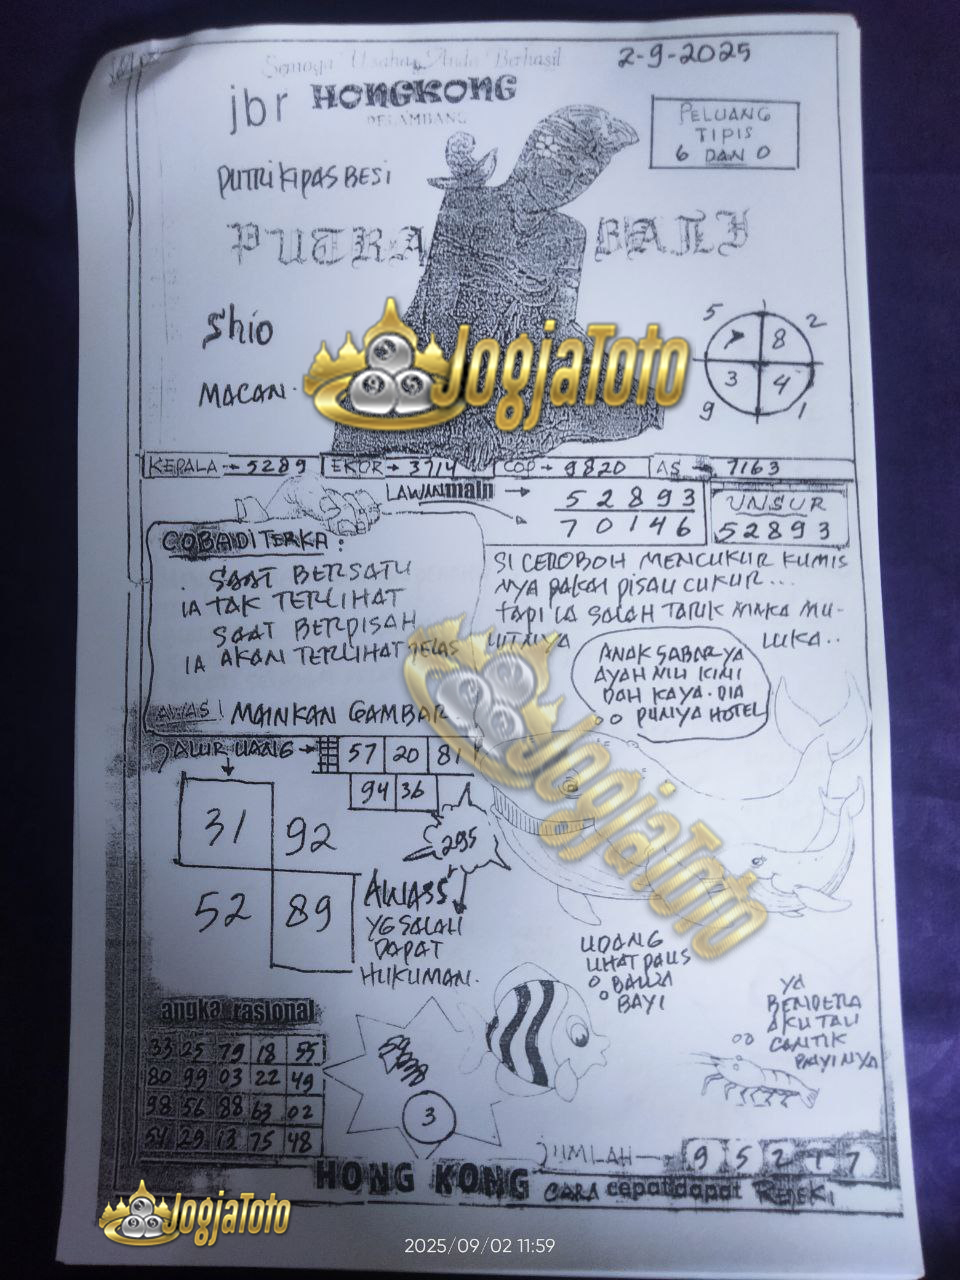 Semoga Usaha Anda Berhasil
2-9-2025
jbr HONGKONG
PELAMBANG
PELUANG
TIPIS
6 DAN 0
PUTRI KIPAS BESI
PUTRA BALI
Shio
MACAN.
JogjaToto
5 2
7 8
3 4
9 1
KEPALA → 5289 EKOR → 3714 COP → 9820 AS → 7163
LAWAN main → 52893
70146
UNSUR
52893
COBA DI TERKA :
SAAT BERSATU
IA TAK TERLIHAT
SAAT BERPISAH
IA AKAN TERLIHAT JELAS
AWAS! MAINKAN GAMBAR
SI CEROBOH MENCUKUR KUMIS
NYA PAKAI PISAU CUKUR...
TAPI IA SALAH TARIK MAKA MU-
LUTNYA LUKA..
ANAK SABAR YA
AYAH MU KINI
DAH KAYA. DIA
PUNYA HOTEL
JALUR UANG → 57 20 81
94 36
31 92
52 89
295
JogjaToto
AWASS
YG SALAH
DAPAT
HUKUMAN.
UDANG
LIHAT PAUS
BAWA
BAYI
YA
BENDERA
AKU TAU
CANTIK
BAYINYA
angka rasional
33 25 79 18 55
80 99 03 22 49
98 56 88 63 02
54 29 13 75 48
3
JUMLAH → 9 5 2 1 7
HONG KONG CARA cepat dapat REJEKI
JogjaToto
2025/09/02 11:59